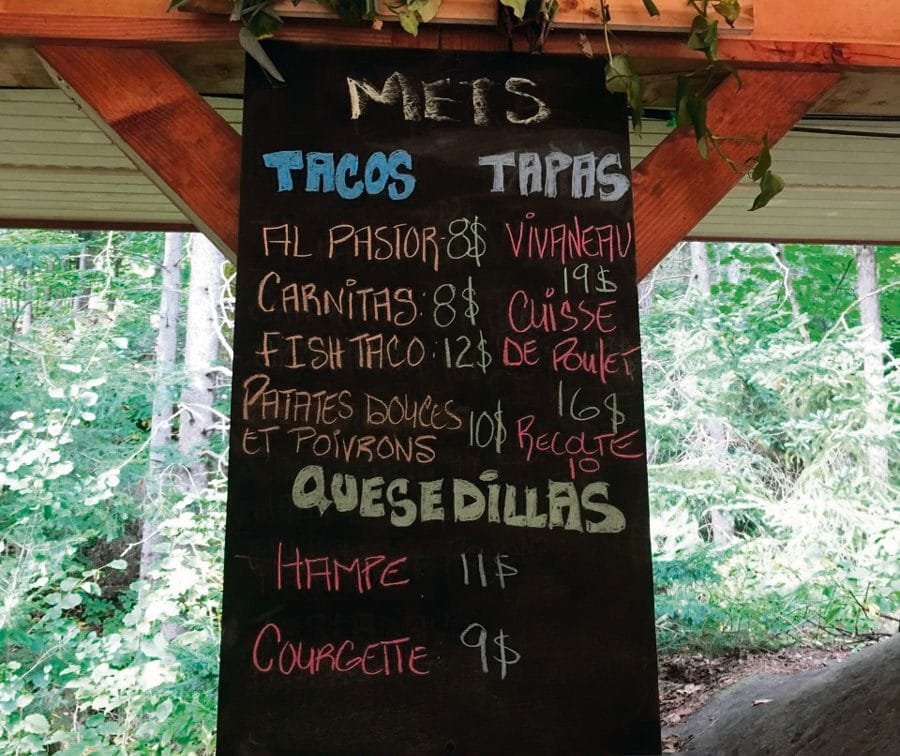 METS
TACOS
AL PASTOR-8$
CARNITAS: 8$
FISH TACO: 12$
PATATES DOUCES
ET POIVRONS 10$
TAPAS
VIVANEAU
19$
CUISSE
DE POULET
16$
RECOLTE
10
QUESEDILLAS
HAMPE 11$
COURGETTE 9$